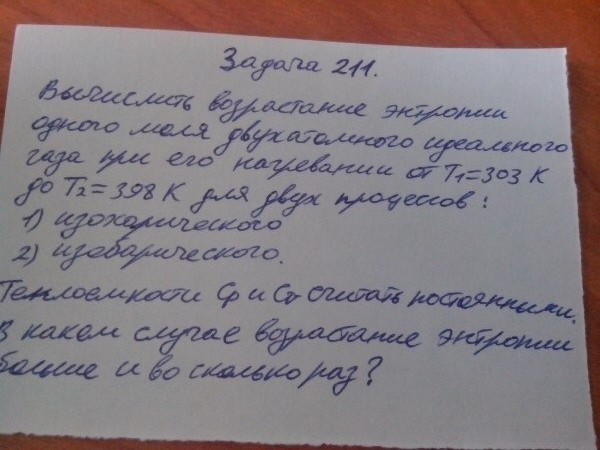 Задача 211.
Вычислить возрастание энтропии
одного моля двухатомного идеального
газа при его нагревании от T₁=303 К
до T₂=398 К для двух процессов:
1) изохорического
2) изобарического.
Теплоемкости Cp и Cv считать постоянными.
В каком случае возрастание энтропии
больше и во сколько раз?